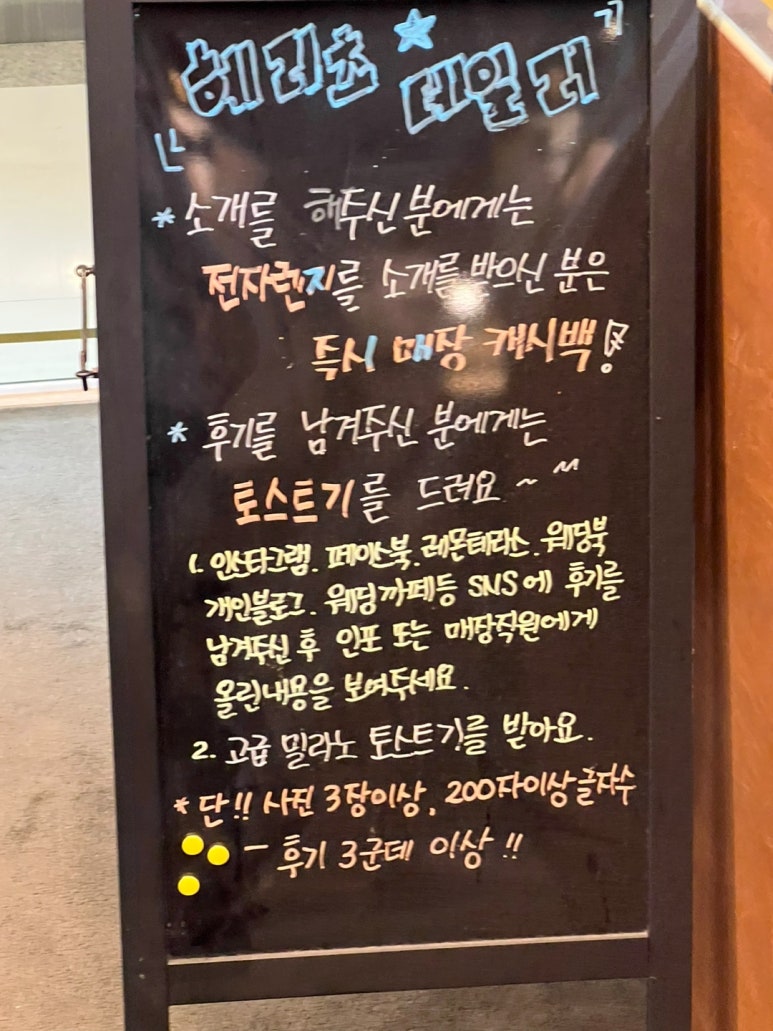 『헤리츠 ★ 테일러』
* 소개를 해주신 분에게는
전자렌지를 소개를 받으신 분은
즉시 매장 캐시백!
* 후기를 남겨주신 분에게는
토스트기를 드려요~^^
1. 인스타그램. 페이스북. 레몬테라스. 웨딩북
개인블로그. 웨딩까페등 SNS에 후기를
남겨주신 후 인포 또는 매장직원에게
올린내용을 보여주세요.
2. 고급 밀라노 토스트기를 받아요.
* 단!! 사진 3장이상, 200자이상 글자수
- 후기 3군데 이상!!